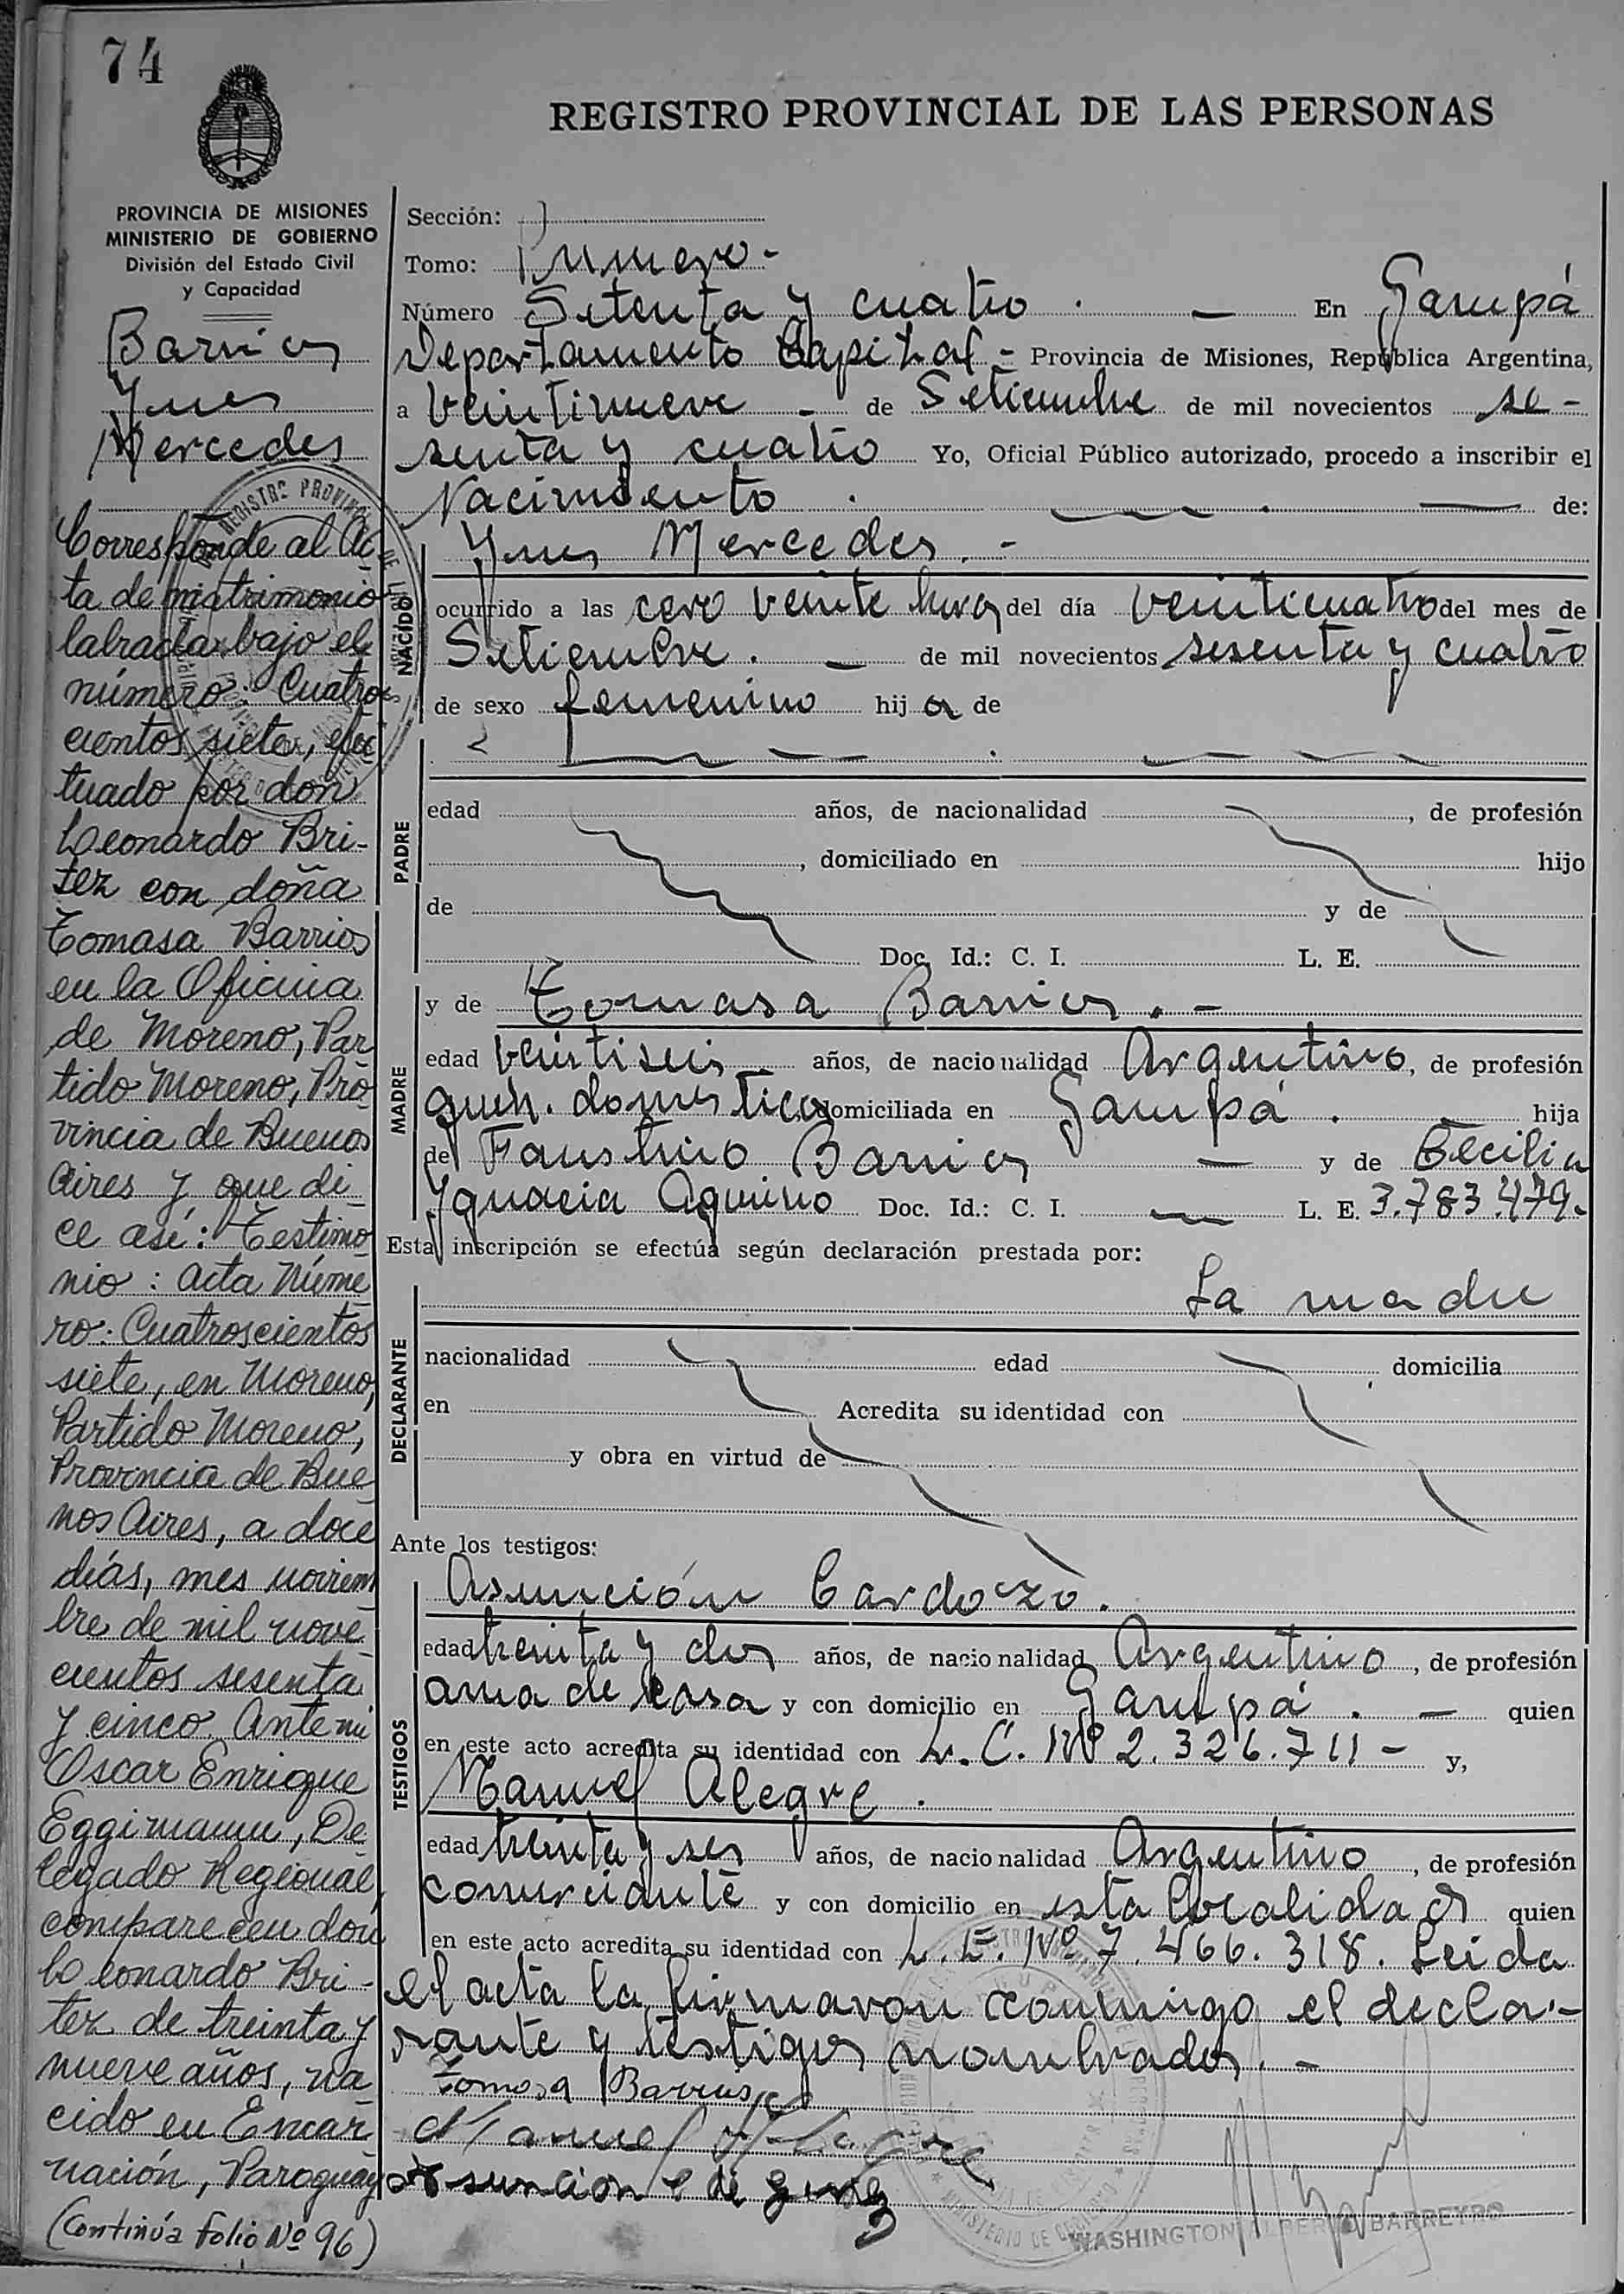 74
REGISTRO PROVINCIAL DE LAS PERSONAS
PROVINCIA DE MISIONES
MINISTERIO DE GOBIERNO
División del Estado Civil
y Capacidad
Barrios
Ynes
Mercedes
Corresponde al Ac
ta de matrimonio
labrada bajo el
número: Cuatro
cientos siete, efec
tuado por don
Leonardo Bri-
tez con doña
Tomasa Barrios
en la Oficina
de Moreno, Par
tido Moreno, Pro
vincia de Buenos
Aires y que di
ce así: Testimo
nio: Acta Núme
ro: Cuatroscientos
siete, en Moreno,
Partido Moreno,
Provincia de Bue
nos Aires, a doce
días, mes noviem
bre de mil nove
cientos sesenta
y cinco. Ante mi
Oscar Enrique
Eggimann, De
legado Regional,
comparecen don
Leonardo Bri-
tez de treinta y
nueve años, na
cido en Encar
nación, Paraguay
(Continúa Folio Nº 96)
Sección:
Tomo: Primero-
Número Setenta y cuatro . — En Garupá
Departamento Capital - Provincia de Misiones, República Argentina,
a veintinueve - de Setiembre de mil novecientos se-
senta y cuatro Yo, Oficial Público autorizado, procedo a inscribir el
Nacimiento . — . — de:
NACIDO
Ynes Mercedes. -
ocurrido a las cero veinte horas del día veinticuatro del mes de
Setiembre. — de mil novecientos sesenta y cuatro
de sexo femenino hij a de
PADRE
edad años, de nacionalidad , de profesión
, domiciliado en hijo
de y de
Doc. Id.: C. I. L. E.
MADRE
y de Tomasa Barrios. -
edad veintiseis años, de nacionalidad Argentino, de profesión
queh. domestico domiciliada en Garupá . hija
de Faustino Barrios — y de Cecilia
Ygnacia Aquino Doc. Id.: C. I. — L. E. 3.783.479.
Esta inscripción se efectúa según declaración prestada por:
DECLARANTE
La madre
nacionalidad edad domicilia
en Acredita su identidad con
y obra en virtud de
Ante los testigos:
TESTIGOS
Asunción Cardozo.
edad treinta y dos años, de nacionalidad Argentino, de profesión
ama de casa y con domicilio en Garupá . — quien
en este acto acredita su identidad con L. C. Nº 2.326.711 - y,
Manuel Alegre .
edad treinta y seis años, de nacionalidad Argentino, de profesión
comerciante y con domicilio en esta localidad quien
en este acto acredita su identidad con L. E. Nº 7.466.318. Leida
el acta la firmaron conmigo el decla-
rante y testigos nombrados. -
Tomasa Barrios
Manuel Alegre
WASHINGTON ALBERTO BARREYRO